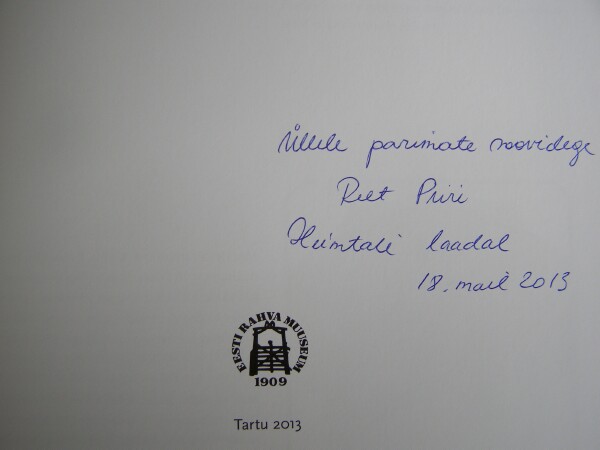 Üllele parimate soovidega
Reet Piiri
Heimtali laadal
18. mail 2013
EESTI RAHVA MUUSEUM
1909
Tartu 2013